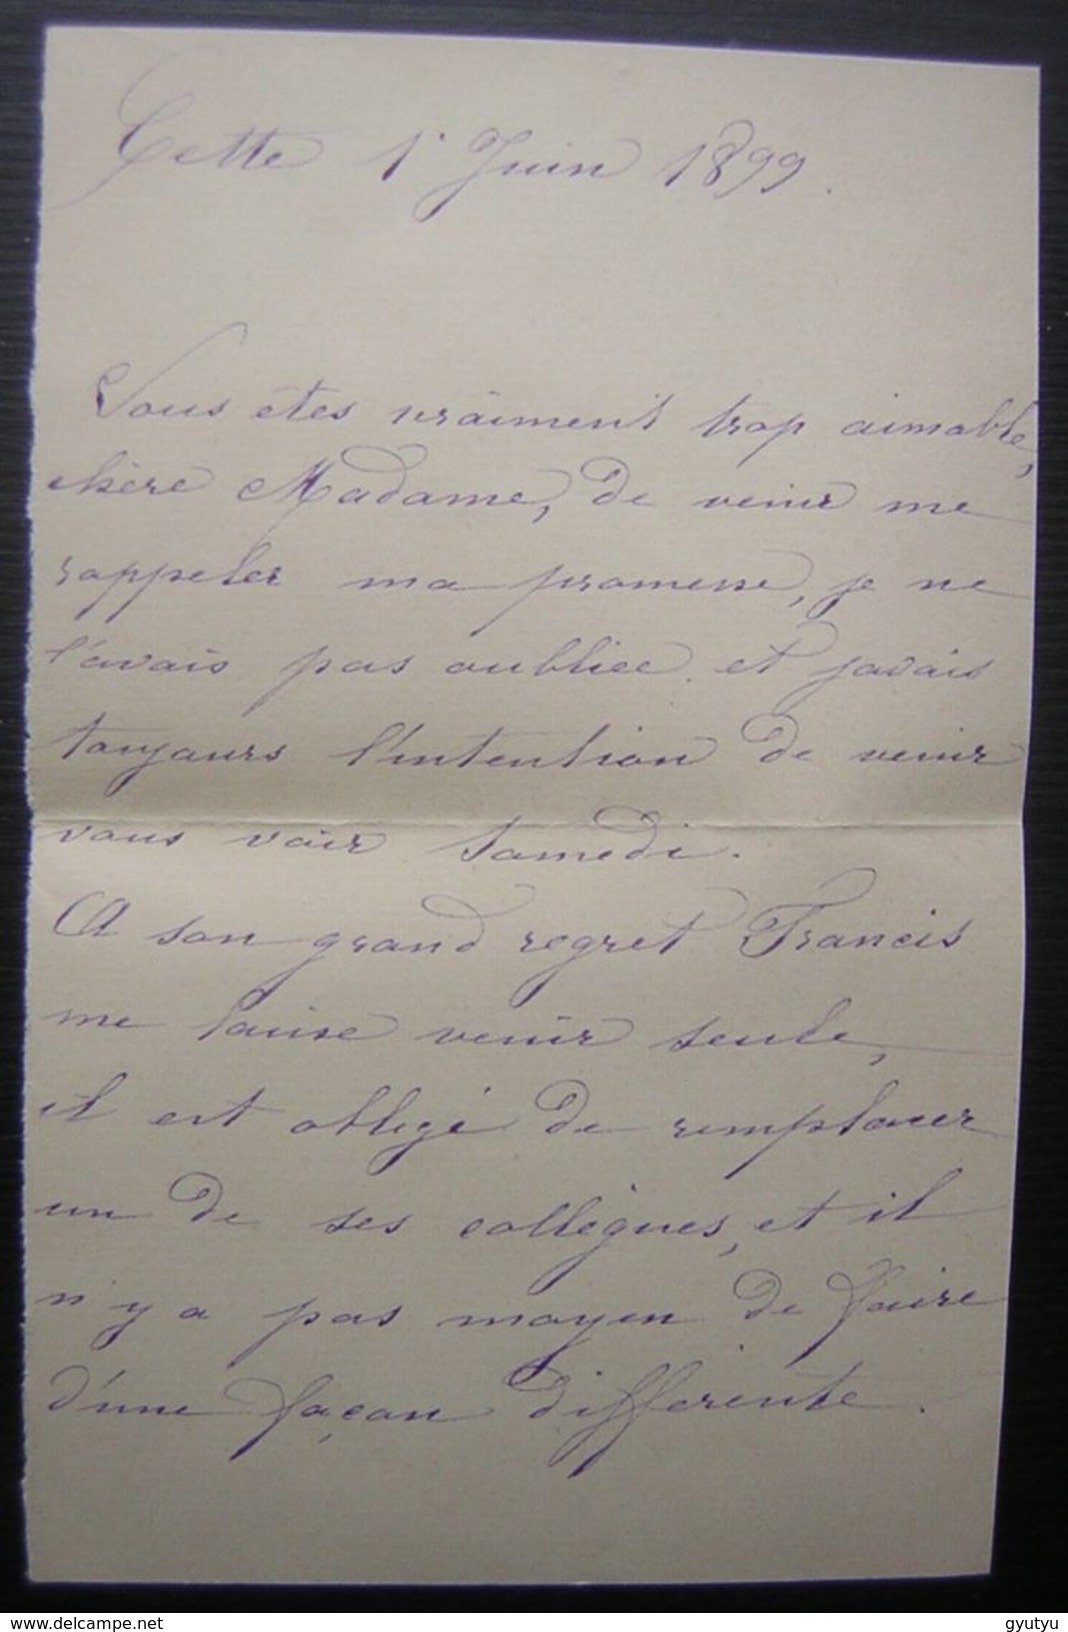 Cette 1er Juin 1899.
Vous êtes vraiment trop aimable,
chère Madame, de venir me
rappeler ma promesse, je ne
l'avais pas oubliée et j'avais
toujours l'intention de venir
vous voir samedi.
A son grand regret Francis
me laisse venir seule,
il est obligé de remplacer
un de ses collègues, et il
n'y a pas moyen de faire
d'une façon différente.
delcampe.net
gyutyu